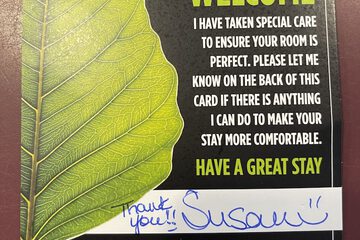 WELCOME
I HAVE TAKEN SPECIAL CARE
TO ENSURE YOUR ROOM IS
PERFECT. PLEASE LET ME
KNOW ON THE BACK OF THIS
CARD IF THERE IS ANYTHING
I CAN DO TO MAKE YOUR
STAY MORE COMFORTABLE.
HAVE A GREAT STAY
Thank
you!! Susan